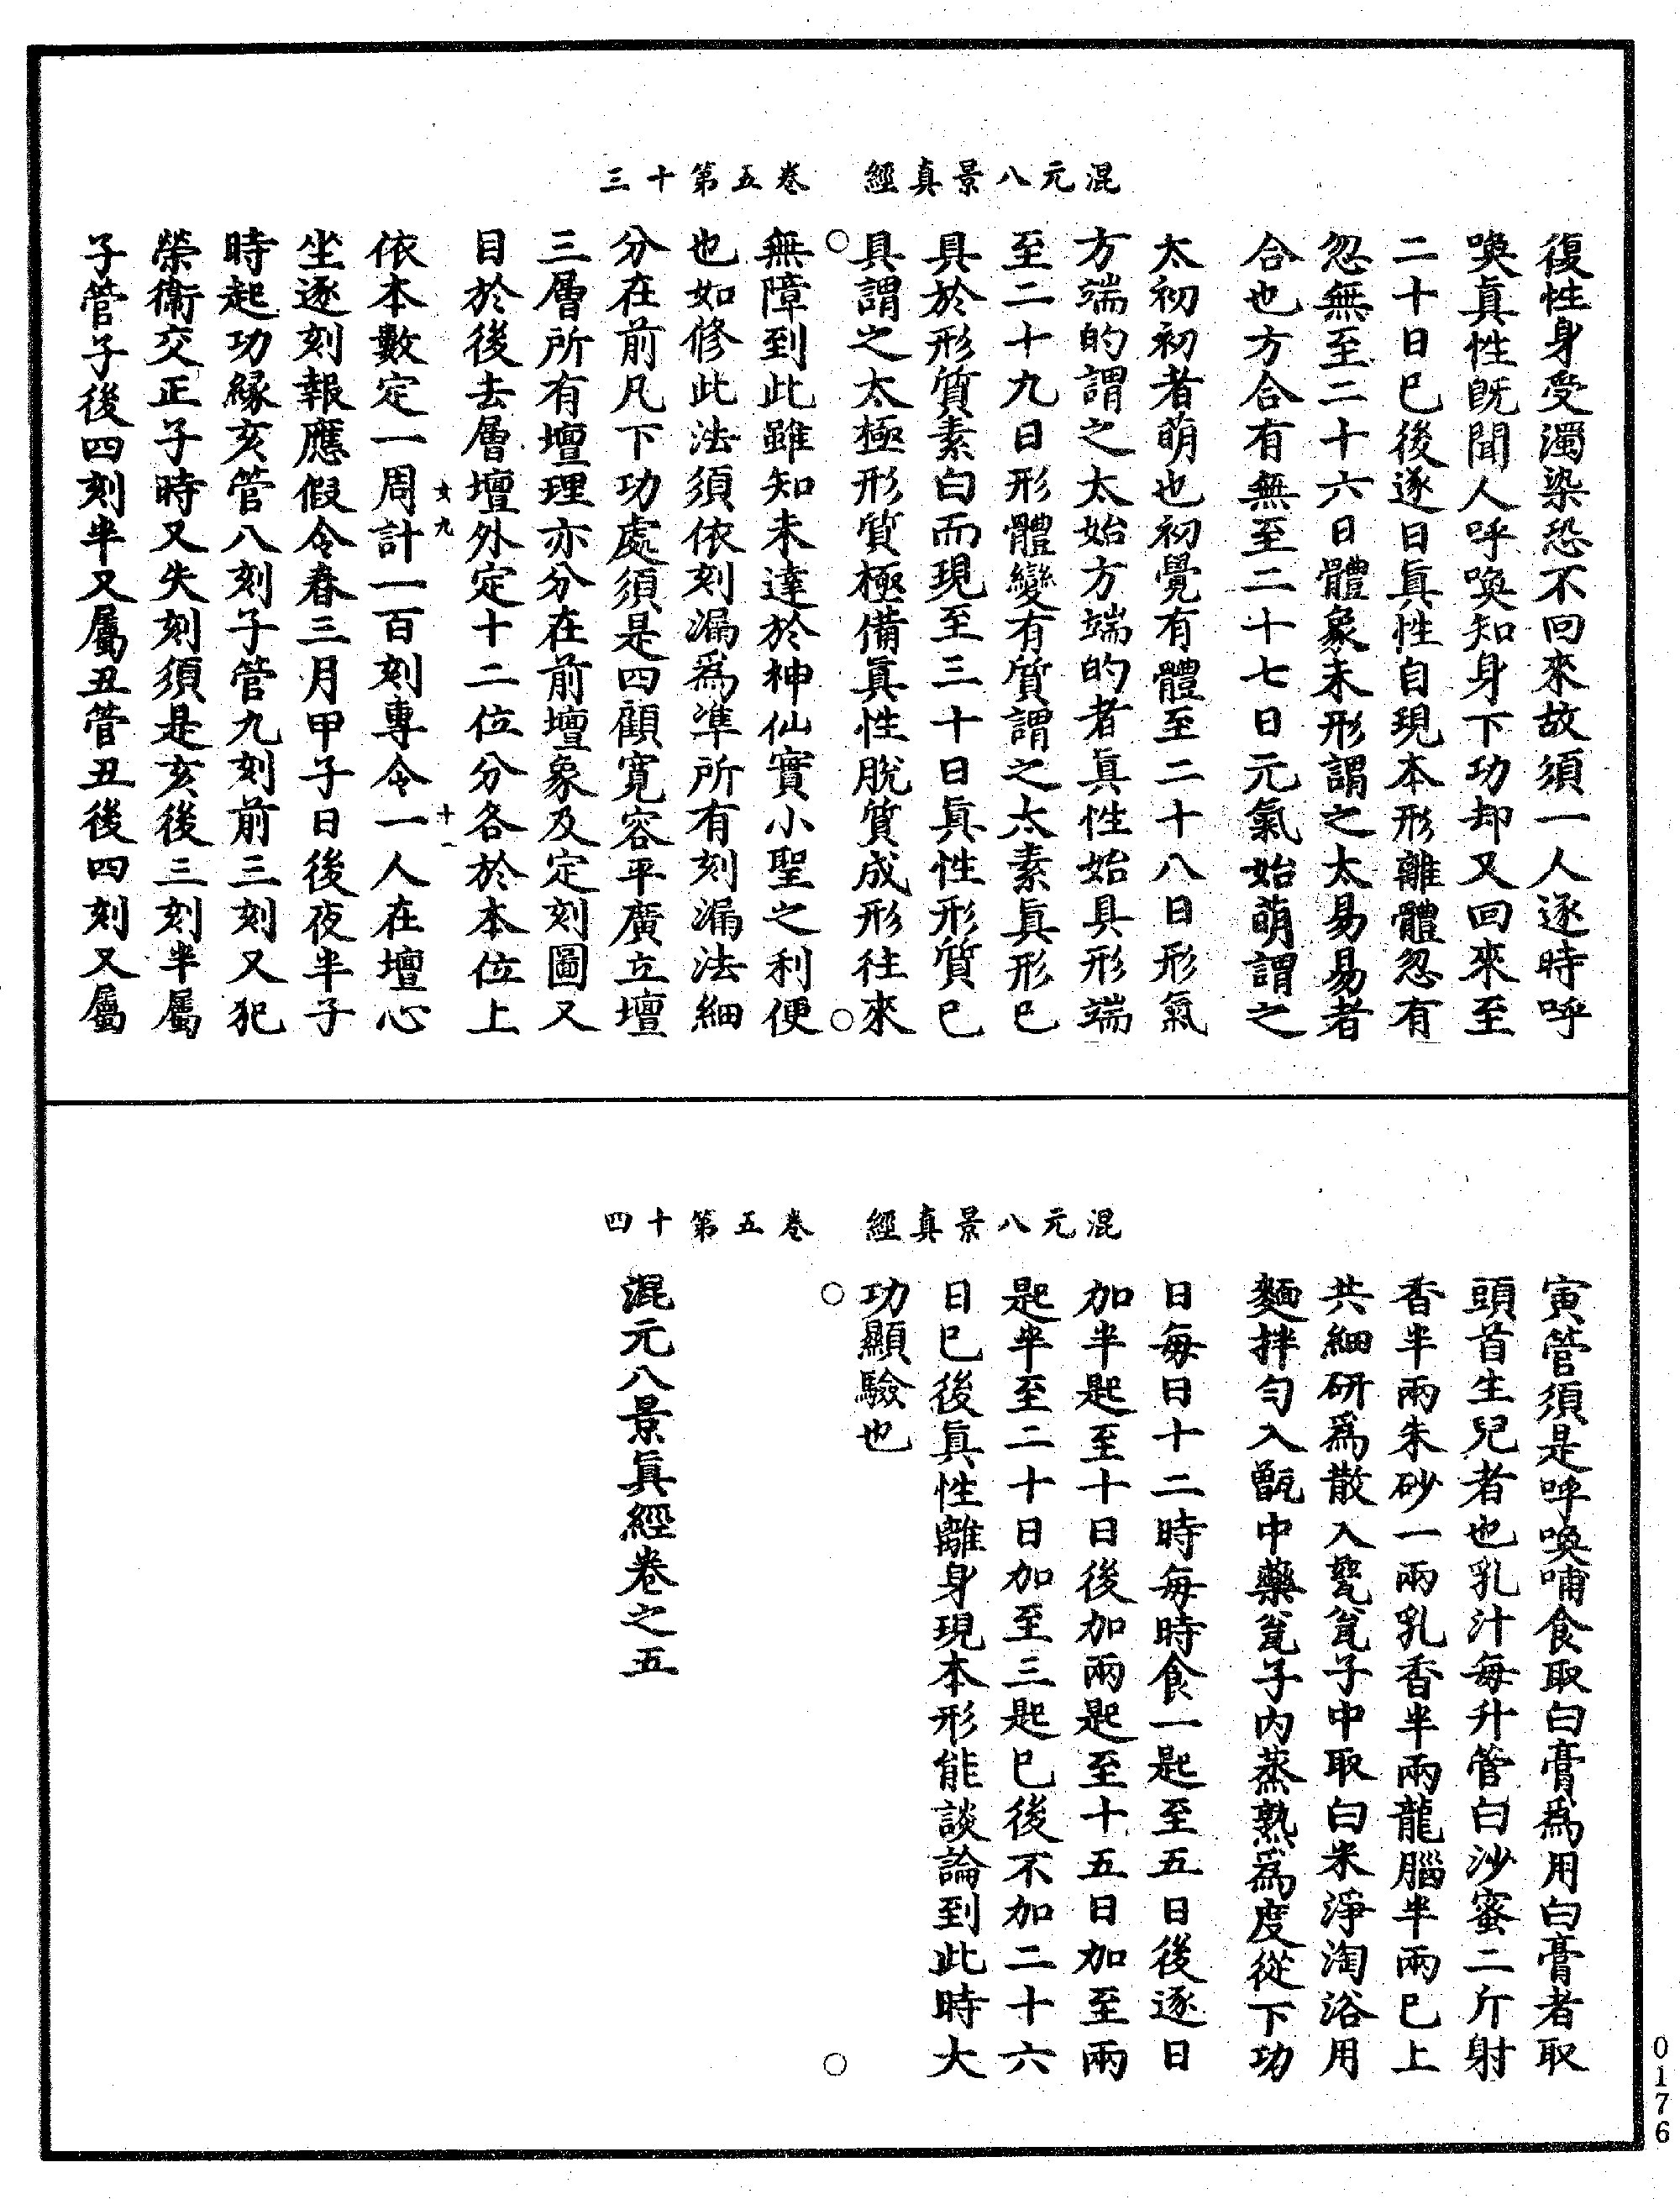 混元八景真經　卷五第十三
復性身受濁染恐不回來故須一人逐時呼
喚真性旣聞人呼喚知身下功却又回來至
二十日巳後逐日真性自現本形離體忽有
忽無至二十六日體象未形謂之太易易者
合也方合有無至二十七日元氣始萌謂之
太初初者萌也初覺有體至二十八日形氣
方端的謂之太始方端的者真性始具形端
至二十九日形體變有質謂之太素真形巳
具於形質素白而現至三十日真性形質巳
具謂之太極形質極備真性脫質成形往來
無障到此雖知未達於神仙實小聖之利便
也如修此法須依刻漏爲準所有刻漏法細
分在前凡下功處須是四顧寬容平廣立壇
三層所有壇理亦分在前壇象及定刻圖又
目於後去層壇外定十二位分各於本位上
依本數定一周計一百刻專令一人在壇心
坐逐刻報應假令春三月甲子日後夜半子
時起功緣亥管八刻子管九刻前三刻又犯
榮衛交正子時又失刻須是亥後三刻半屬
子管子後四刻半又屬丑管丑後四刻又屬
混元八景真經　卷五第十四
寅管須是呼喚哺食取白膏爲用白膏者取
頭首生兒者也乳汁每升管白沙蜜二斤射
香半兩朱砂一兩乳香半兩龍腦半兩巳上
共細研爲散入甆瓮子中取白米淨淘浴用
麵拌勻入甑中藥瓮子內蒸熟爲度從下功
日每日十二時每時食一匙至五日後逐日
加半匙至十日後加兩匙至十五日加至兩
匙半至二十日加至三匙巳後不加二十六
日巳後真性離身現本形能談論到此時大
功顯驗也
混元八景真經卷之五
0176